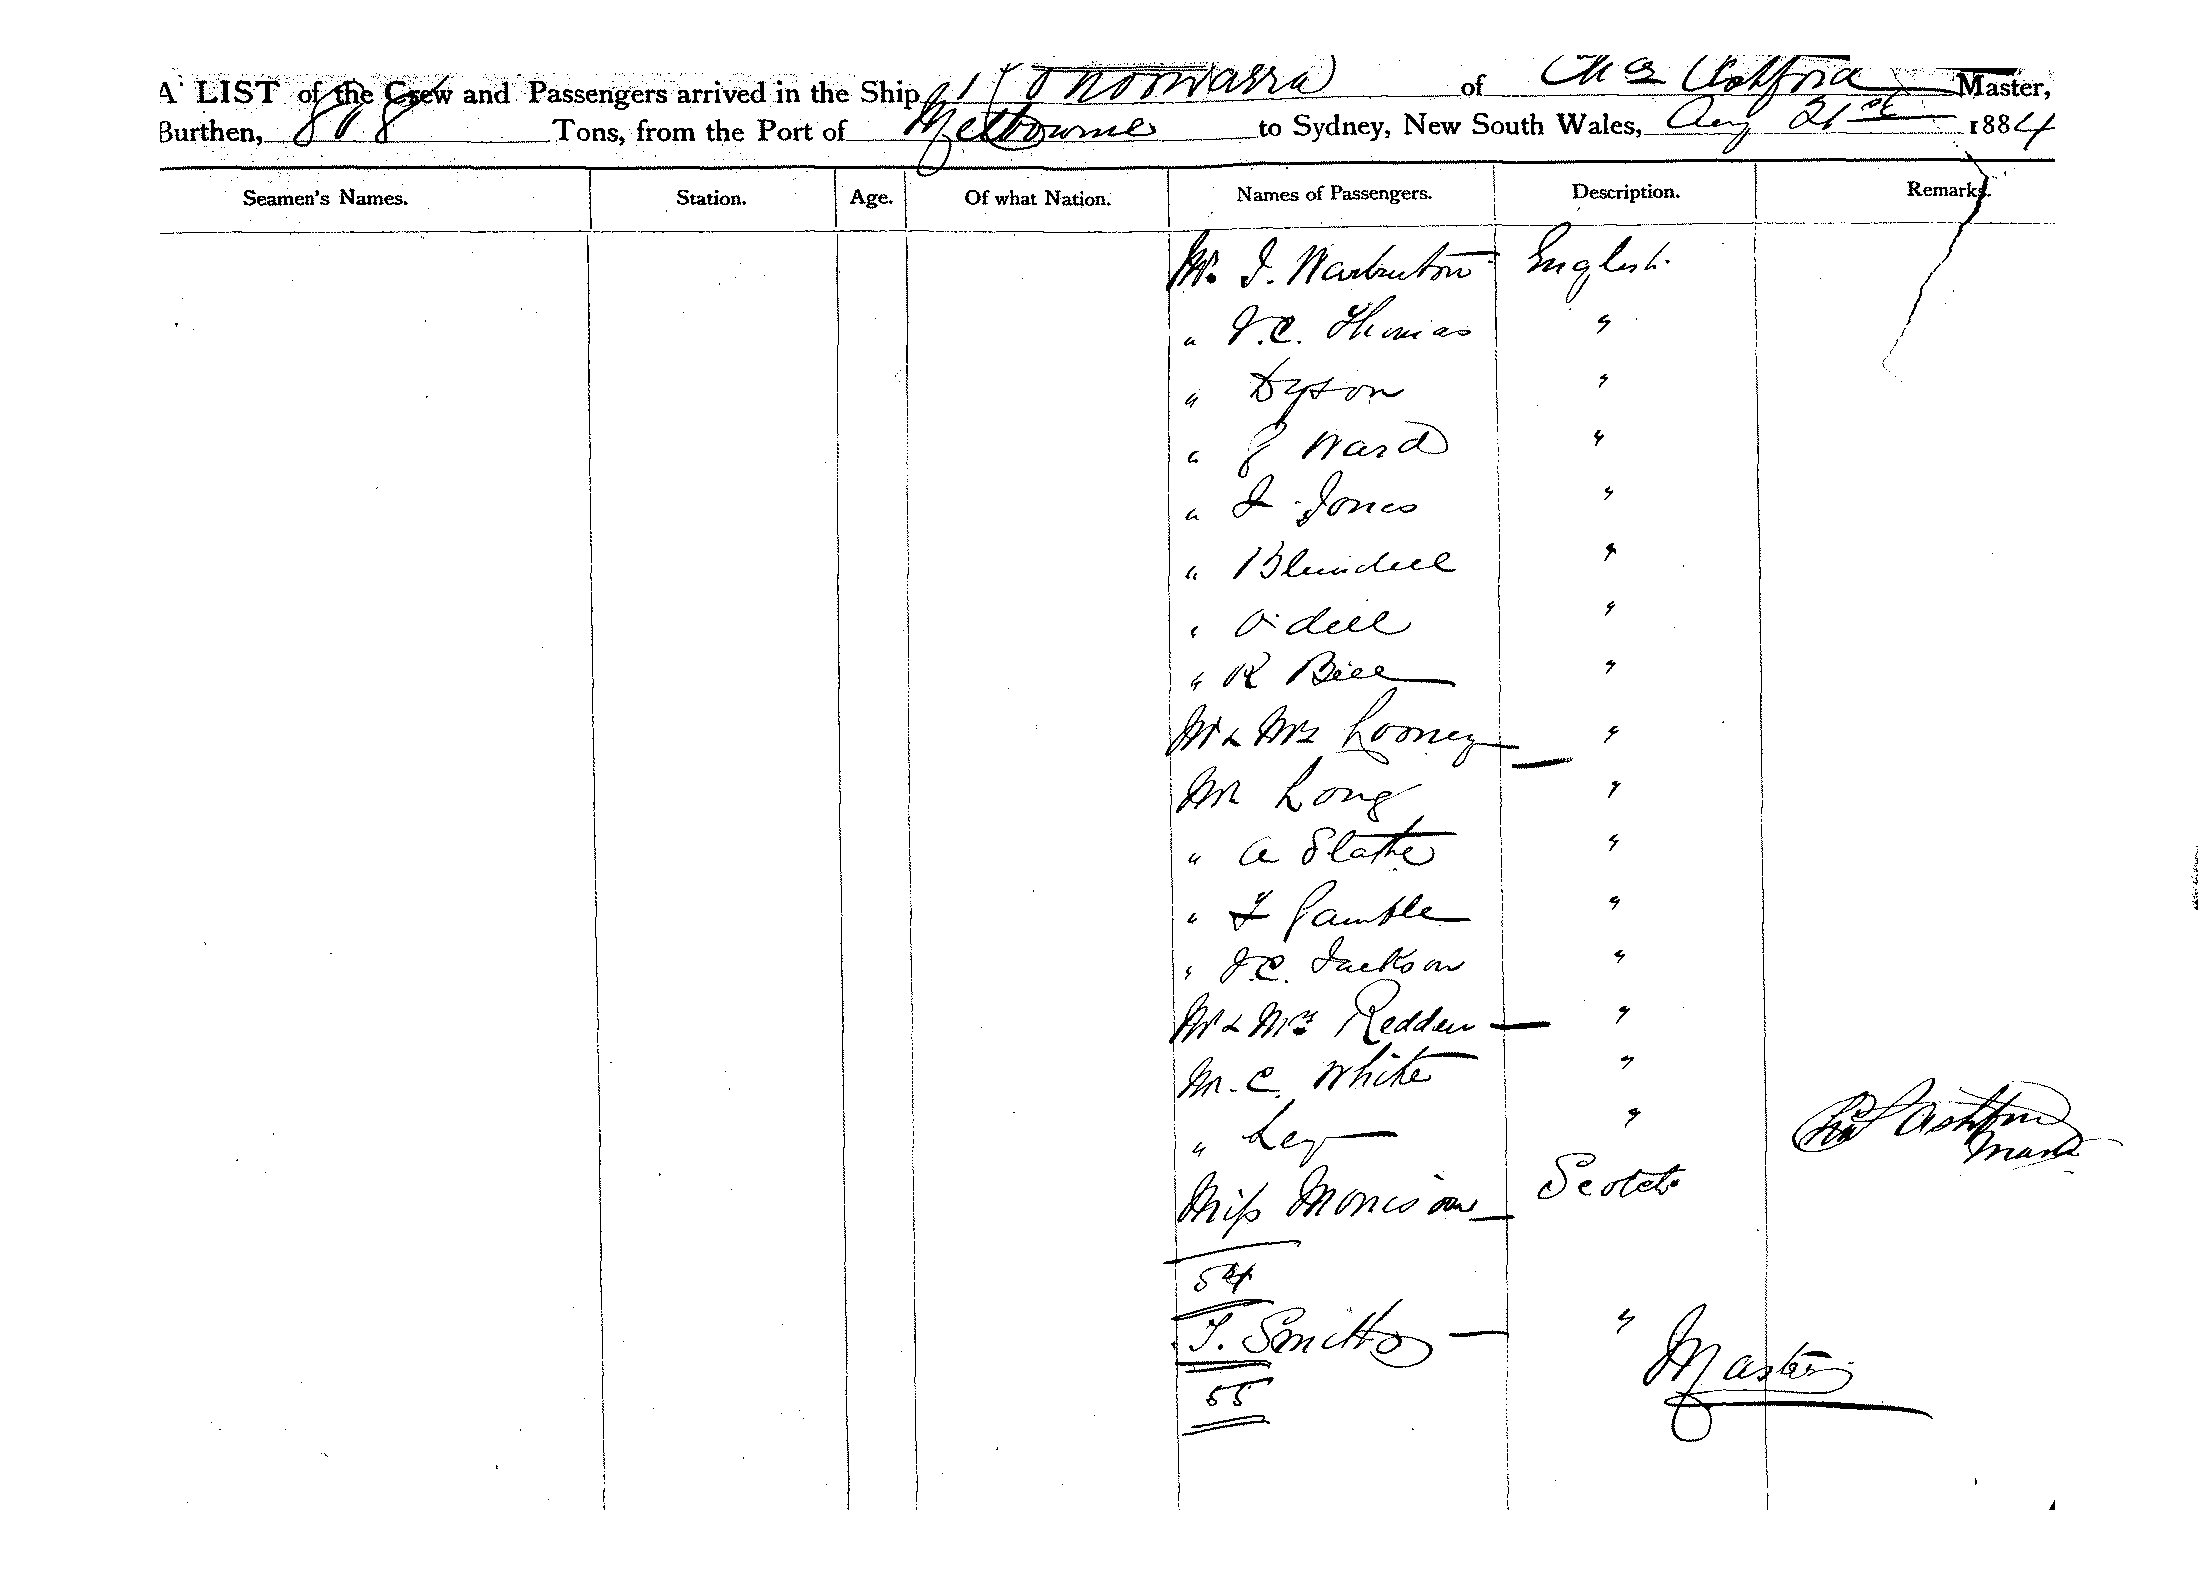 A LIST of the Crew and Passengers arrived in the Ship Konoowarra of Chas Ashford Master,
Burthen, 808 Tons, from the Port of Melbourne to Sydney, New South Wales, Aug 21st 1884
Seamen's Names. Station. Age. Of what Nation. Names of Passengers. Description. Remarks.
Mr. J. Warburton English
" J.C. Thomas "
" Dyson "
" J Ward "
" J Jones "
" Blundell "
" Odell "
" R Bell "
Mr & Mrs Looney "
Mr Long "
" A Slatter "
" F Gamble "
" J.C. Jackson "
Mr & Mrs Redden "
Mr C. White "
" Ley "
Chas Ashford
Master
Miss Morrison Scotch
54
T. Smith "
Master
55